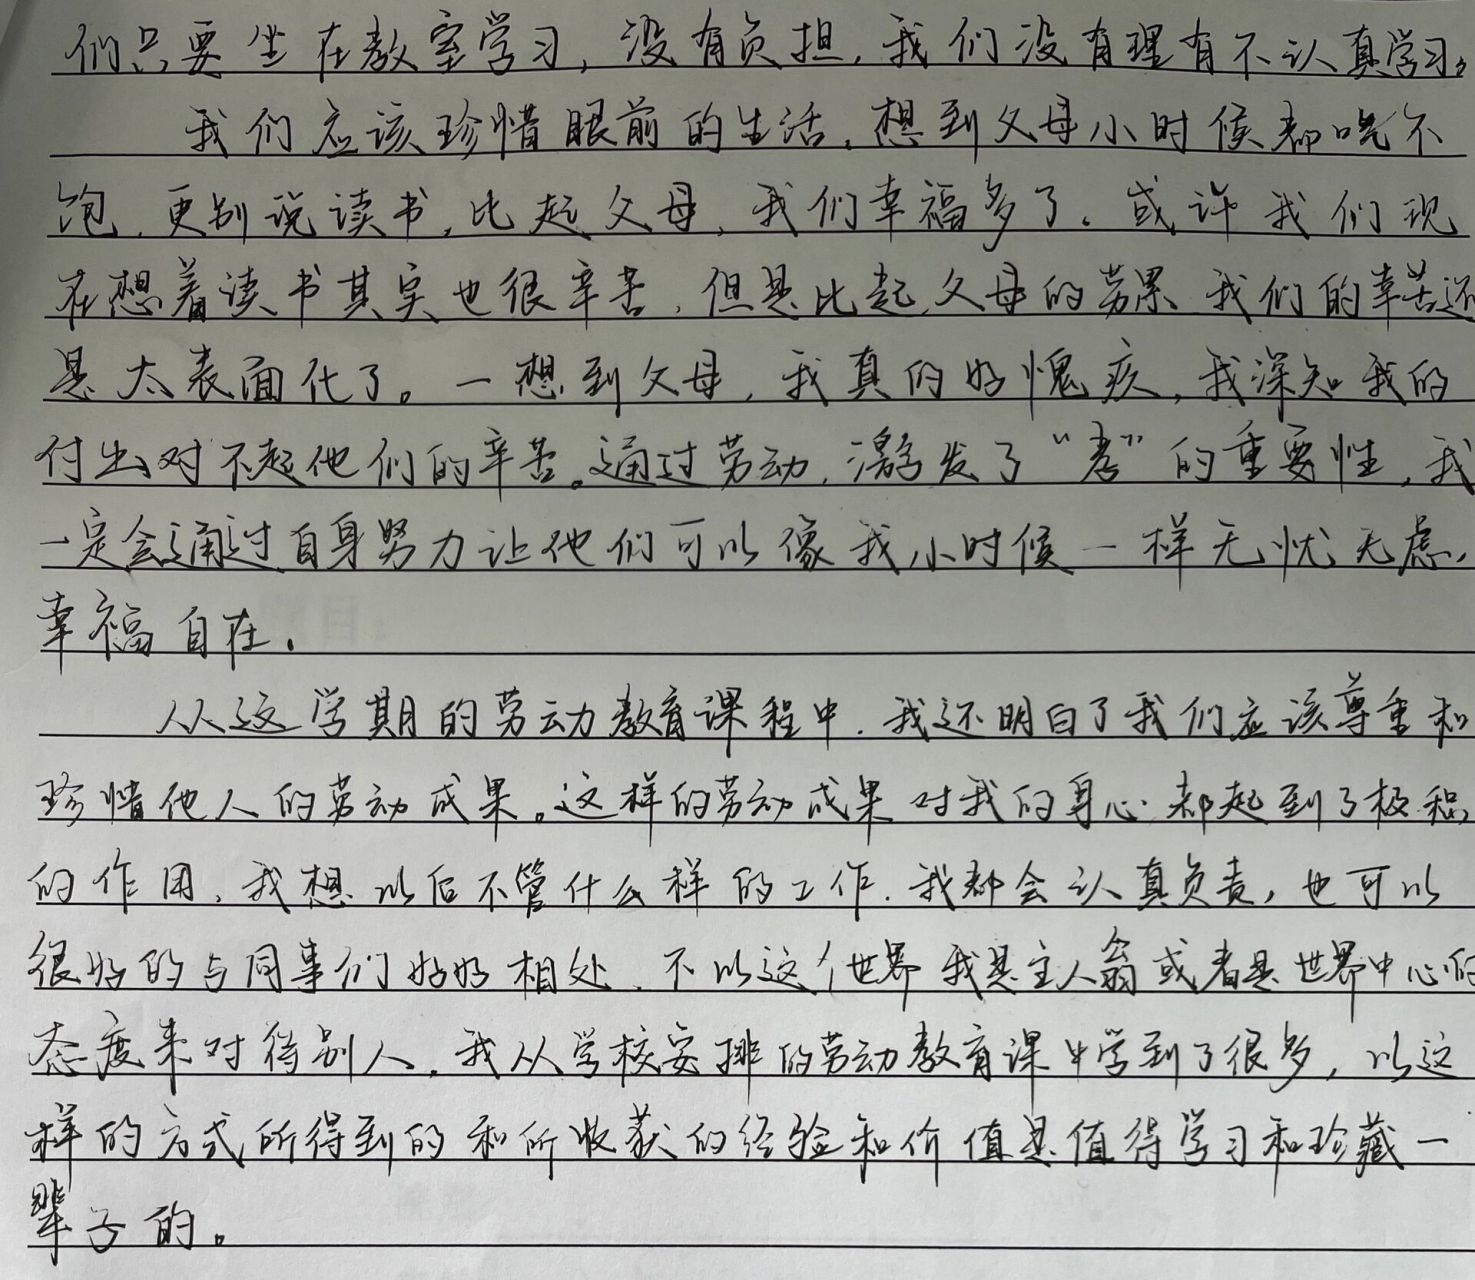 们只要坐在教室学习，没有负担，我们没有理有不认真学习，
我们应该珍惜眼前的生活，想到父母小时候都吃不
饱，更别说读书，比起父母，我们幸福多了。或许我们现
在想着读书其实也很辛苦，但是比起父母的劳累，我们的幸苦还
是太表面化了。一想到父母，我真的好愧疚，我深知我的
付出对不起他们的辛苦。通过劳动，激发了“孝”的重要性，我
一定会通过自身努力让他们可以像我小时候一样无忧无虑，
幸福自在。
从这学期的劳动教育课程中，我还明白了我们应该尊重和
珍惜他人的劳动成果。这样的劳动成果对我的身心都起到了极积
的作用，我想以后不管什么样的工作，我都会认真负责，也可以
很好的与同事们好好相处，不以这个世界我是主人翁或者是世界中心的
态度来对待别人。我从学校安排的劳动教育课中学到了很多，以这
样的方式所得到的和所收获的经验和价值是值得学习和珍藏一
辈子的。